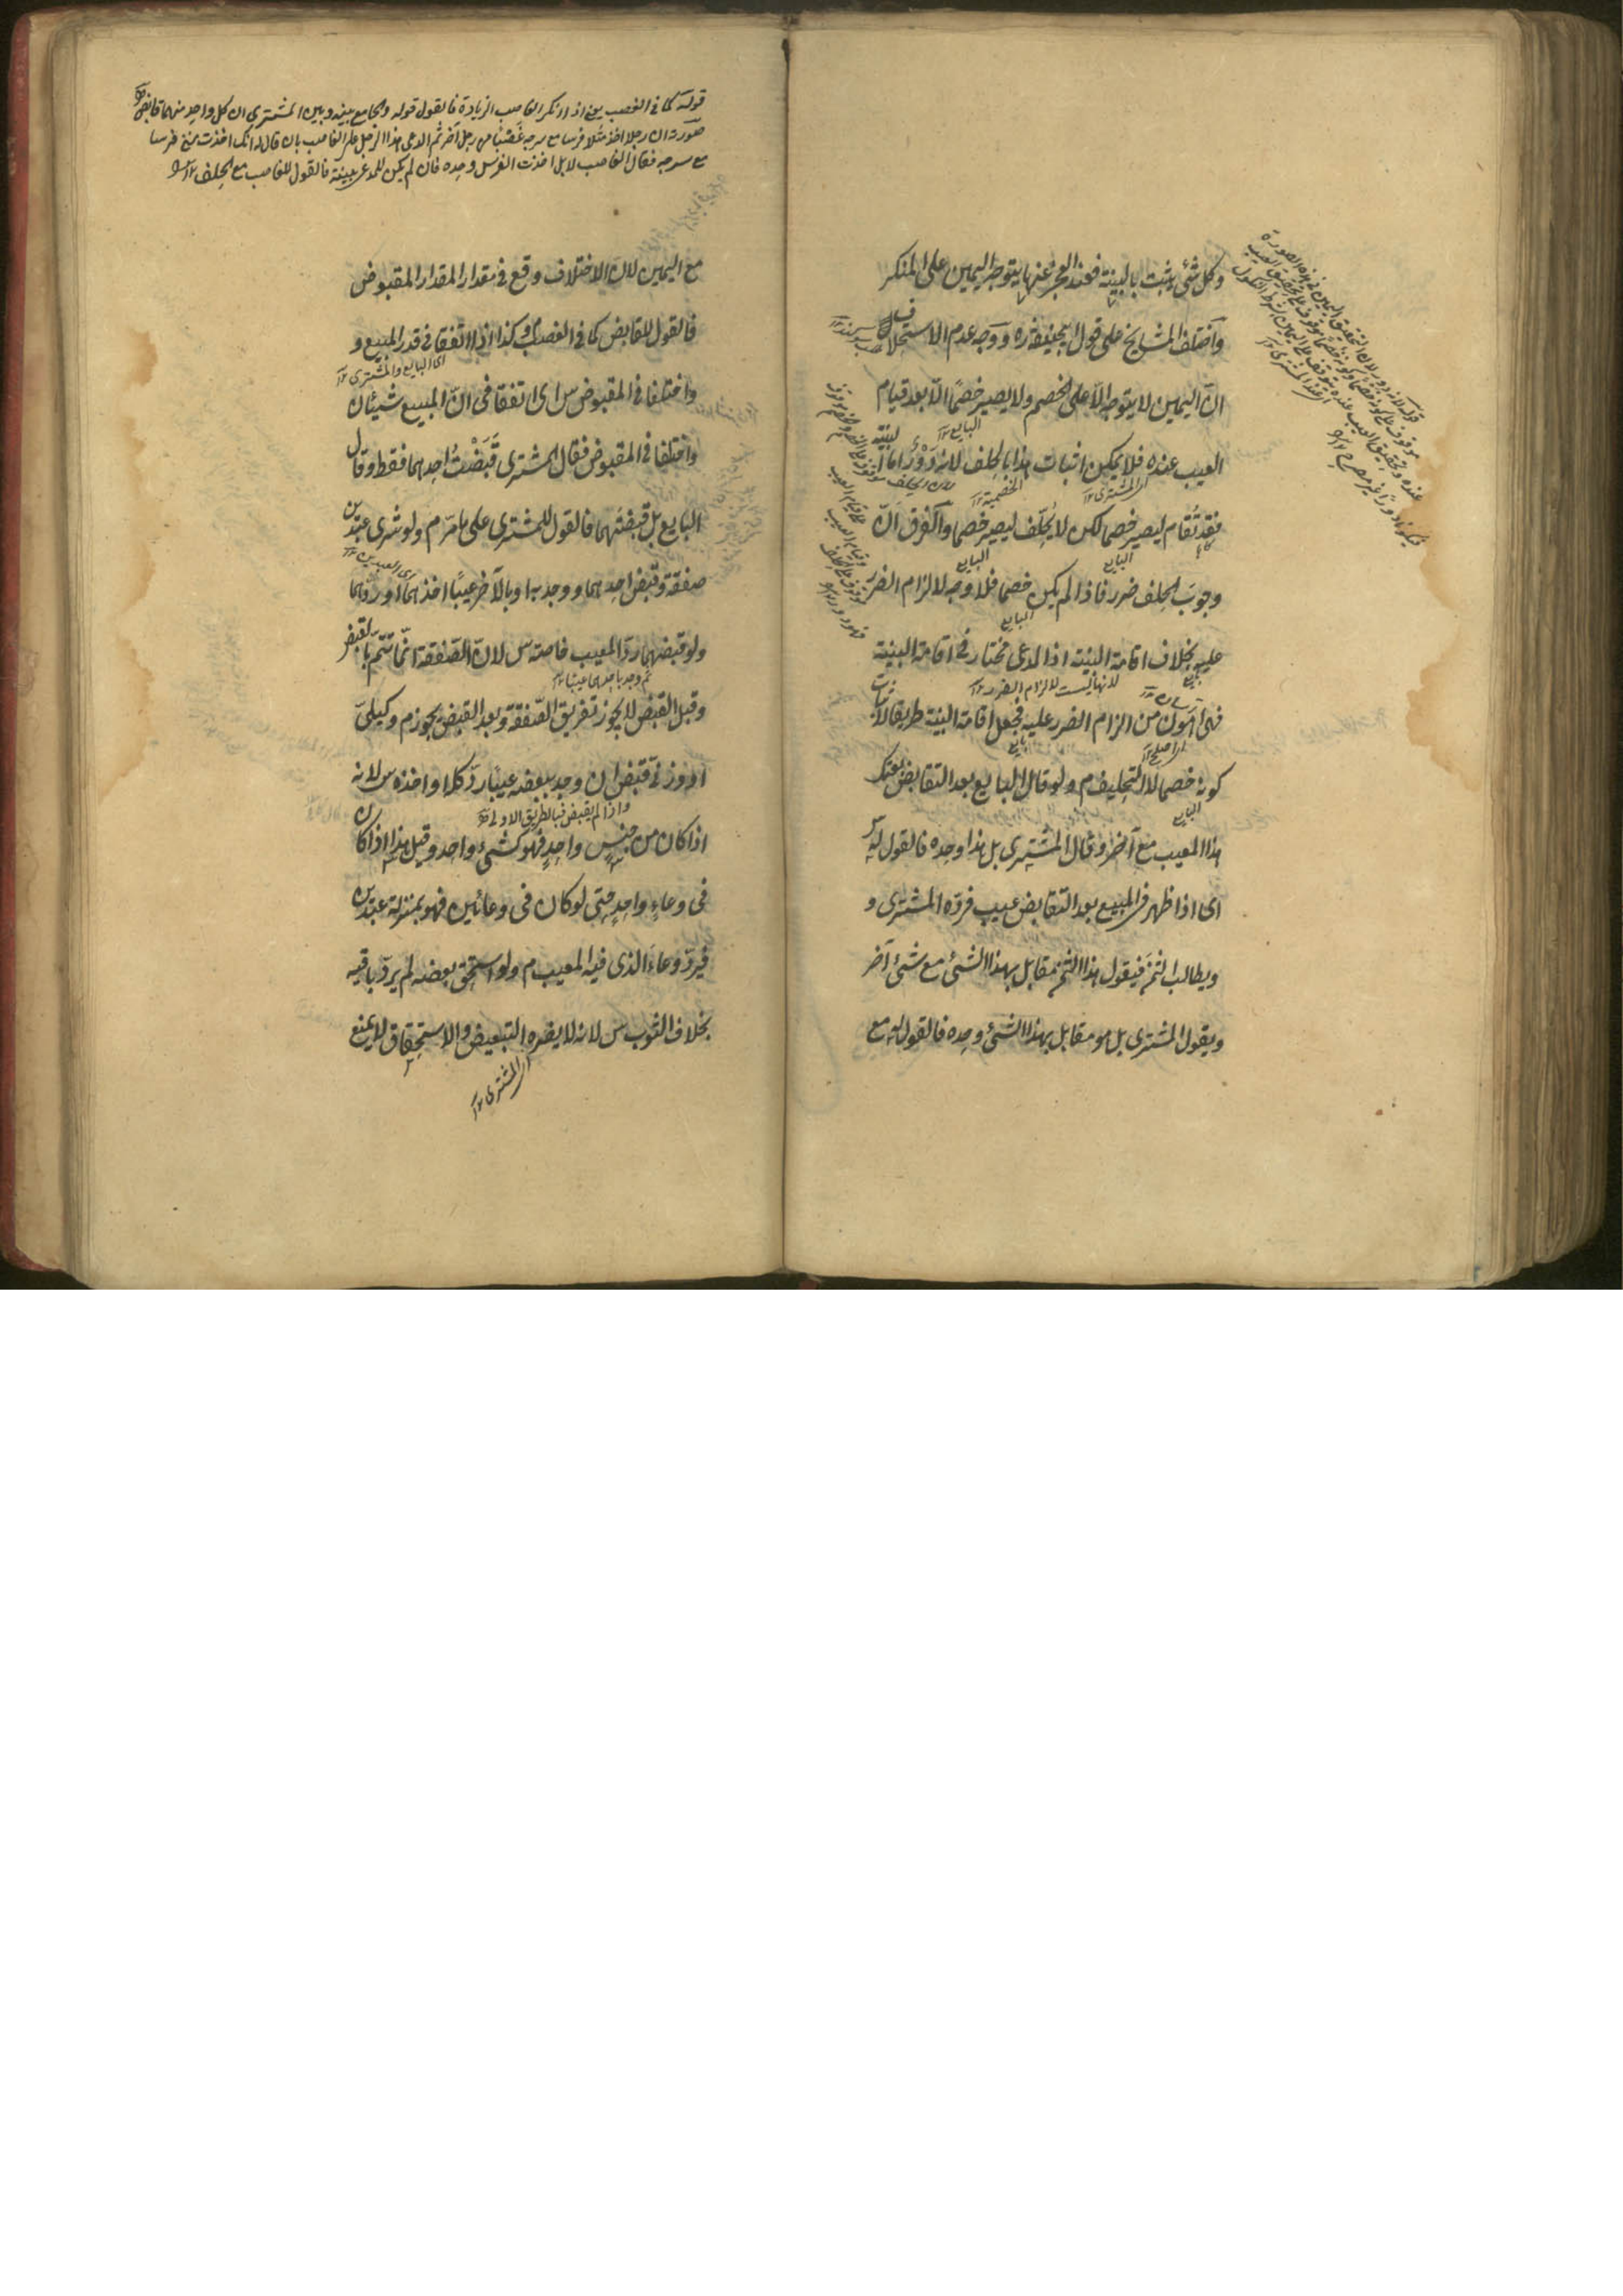 وكل شئ يثبت بالبينة فعند العجز عنها يتوجه اليمين على المنكر
واختلف المشايخ على قول ابيحنيفة ره ووجه عدم الاستحلاف
انّ اليمين لا يتوجه الّا على الخصم ولا يصير خصمًا الّا بعد قيام
العيب عنده فلا يمكن اثبات هذا بالحلف لانه دَوْرٌ امّا البينة
فقد تُقام ليصير خصما لكن لا يُحَلّف ليصير خصما والفرق انّ
وجوبَ الحلف ضرر فاذا لم يكن خصما فلا وجه لالزام الضرر
عليه بخلاف اقامة البينة اذ المدعى مختار فى اقامة البينة
فهى اهون من الزام الضرر عليه فجعل اقامة البينة طريقا لاثبات
كونه خصما لا التحليف م ولو قال البايع بعد التقابض بعتك
هذا المعيب مع آخر وقال المشترى بل هذا وحده فالقول له س
اى اذا ظهر فى المبيع بعد التقابض عيب فردّه المشترى و
ويطالب الثمن فيقول هذا الثمن مقابل بهذا الشئ مع شئ آخر
ويقول المشترى بل هو مقابل بهذا الشئ وحده فالقول له مع
قوله كما فى الغصب يعنى اذا انكر الغاصب الزيادة فالقول قوله والجامع بينه وبين المشترى ان كل واحد منهما قابض
صورته ان رجلا اخذ مثلا فرسا مع سرجه غصبًا من رجل آخر ثم ادعى هذا الرجل على الغاصب بان قال له انك اخذت منى فرسا
مع سرجه فقال الغاصب لا بل اخذت الفرس وحده فان لم يكن للمدعى بينة فالقول للغاصب مع الحلف ١٢
مع اليمين لانّ الاختلاف وقع فى مقدار المقدار المقبوض
فالقول للقابض كما فى الغصب م وكذا اذا اتفقا فى قدر المبيع و
اى البايع والمشترى ١٢
واختلفا فى المقبوض س اى اتفقا فى انّ المبيع شيئان
واختلفا فى المقبوض فقال المشترى قَبَضْتُ احدهما فقط وقال
البايع بل قبضتَهما فالقول للمشترى على ما مرّ م ولو شرى عبدين
صفقة وقبض احدهما ووجد به او بالآخر عيبًا اخذهما او ردّهما
ولو قبضهما ردّ المعيب خاصة س لانّ الصّفقة انّما تتم بالقبض
ثم وجد باحدهما عيبا ١٢
وقبل القبض لا يجوز تفريق الصّفقة وبعد القبض يجوز م وكيلىّ
او وزنىّ قبض ان وجد ببعضه عيبًا ردّ كله او اخذه س لانه
واذا لم يقبض فبالطريق الاولى
اذا كان من جنس واحدٍ فهو كشئ واحد وقيل هذا اذا كان
فى وعاءٍ واحدٍ حتى لو كان فى وعائين فهو بمنزلة عبدين
فيردّ وعاءَ الذى فيه المعيب م ولو استحق بعضه لم يردّ باقيه
بخلاف الثوب س لانه لا يضره التبعيض والاستحقاق لا يمنع
اى المشترى ١٢